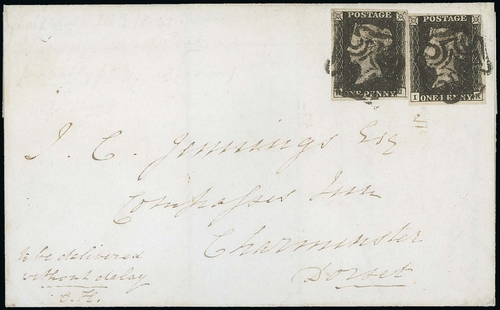 POSTAGE POSTAGE
ONE PENNY ONE PENNY
I K
J. C. Jennings Esq
Compasses Inn
Charminster
Dorset
to be delivered
without delay